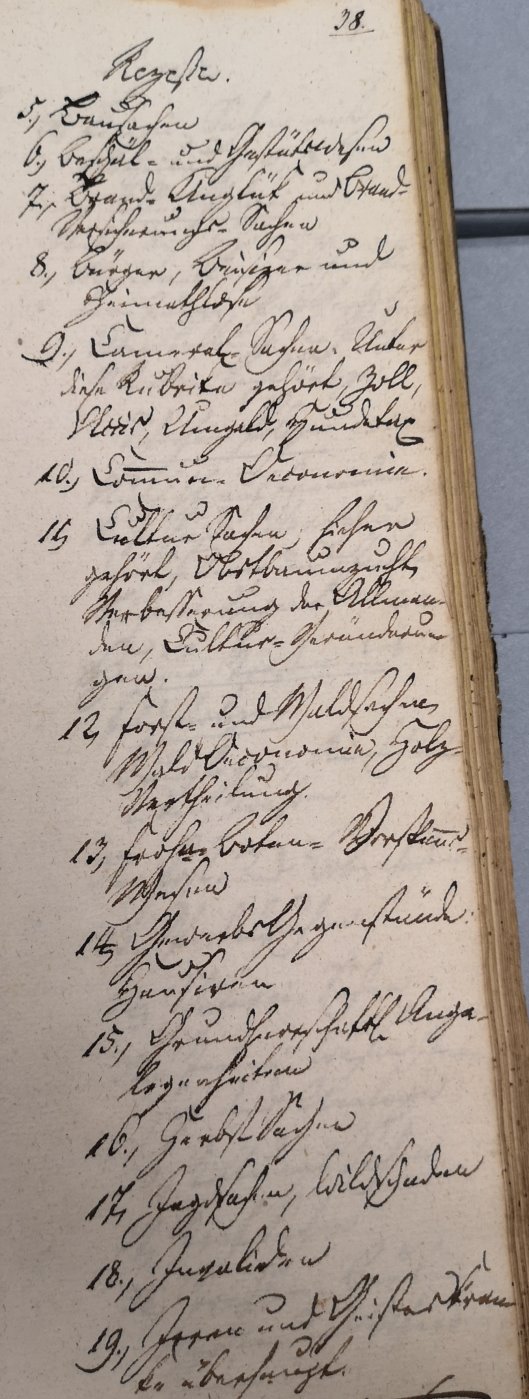 38.
Regester.
5., Bausachen
6., Beschäl- und Gestütswesen
7., Brand- Unglük und Brand-
Versicherungs- Sachen
8., Bürger, Beisizer und
Heimathlose
9., Cameral- Sachen. Unter
diese Rubrike gehört, Zoll,
Accis, Umgeld, Hundetax
10., Com̅un- Oeconomie.
11, Cultur Sachen,
gehört, Obstbaumzucht,
Verbesserung der Allman-
den, Cultur- Veränderun-
gen.
12, Forst- und Waldsachen,
Wald Oeconomie, Holz-
Vertheilung.
13, Frohn- Boten- Vorspan̅s-
Wesen
14, Gewerbs Gegenstände.
Hausiren
15., Grundherrschaftl. Ange-
legenheiten
16., Herbst Sachen
17, Jagdsachen, Wildschaden
18., Invaliden
19., Irren und Geisteskran
ke überhaupt.